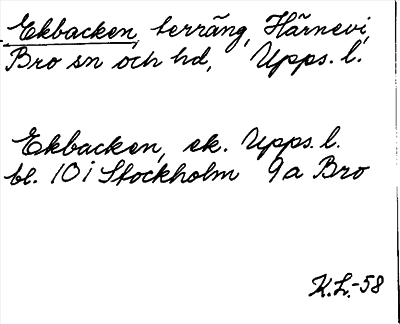 Ekbacken, terräng, Härnevi,
Bro sn och hd, Upps. l.
Ekbacken, ek. Upps. l.
bl. 10 i Stockholm 9a Bro
K.L.-58